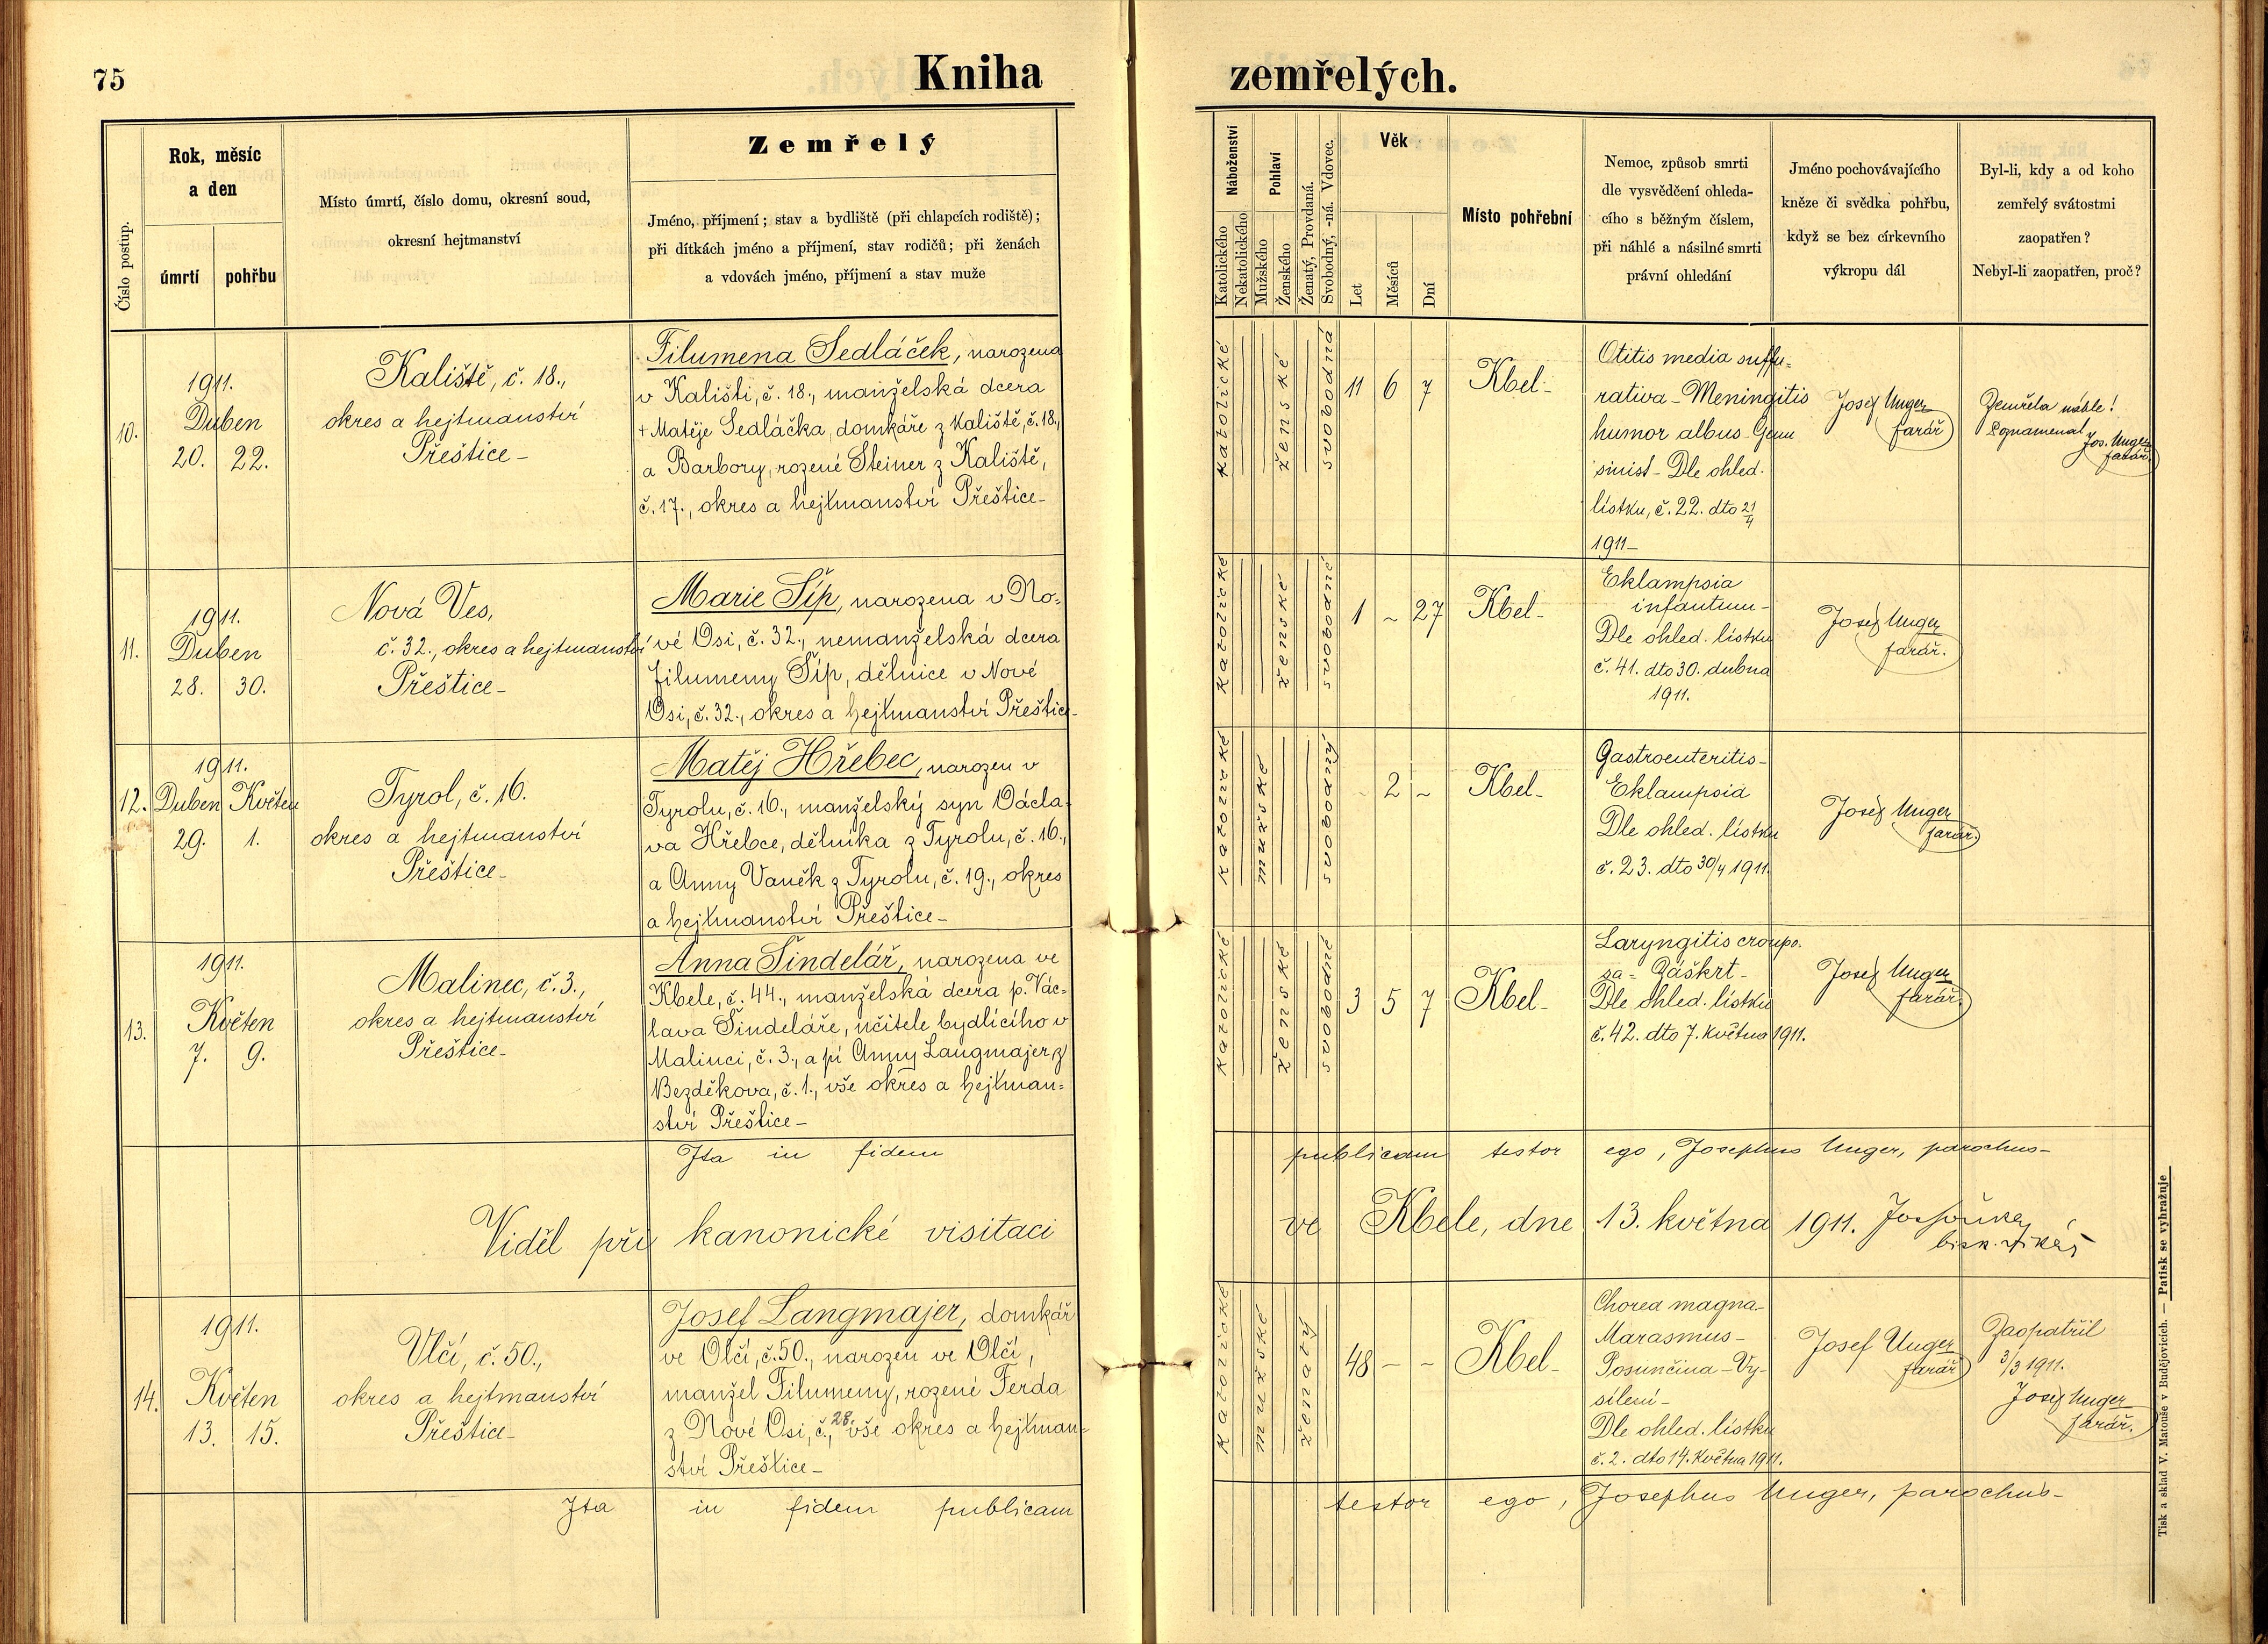 75
Kniha
zemřelých.
Číslo postup.
Rok, měsíc
a den
úmrtí
pohřbu
Místo úmrtí, číslo domu, okresní soud,
okresní hejtmanství
Zemřelý
Jméno, příjmení; stav a bydliště (při chlapcích rodiště);
při dítkách jméno a příjmení, stav rodičů; při ženách
a vdovách jméno, příjmení a stav muže
Náboženství
Katolického
Nekatolického
Pohlaví
Mužského
Ženského
Ženatý, Provdaná.
Svobodný, -ná. Vdovec.
Věk
Let
Měsíců
Dní
Místo pohřební
Nemoc, způsob smrti
dle vysvědčení ohleda-
cího s běžným číslem,
při náhlé a násilné smrti
právní ohledání
Jméno pochovávajícího
kněze či svědka pohřbu,
když se bez církevního
výkropu dál
Byl-li, kdy a od koho
zemřelý svátostmi
zaopatřen?
Nebyl-li zaopatřen, proč?
10.
1911.
Duben
20. 22.
Kaliště, č. 18.,
okres a hejtmanství
Přeštice-
Filumena Sedláček, narozena
v Kališti, č. 18., manželská dcera
+ Matěje Sedláčka, domkáře z Kaliště, č. 18.,
a Barbory, rozené Steiner z Kaliště,
č. 17., okres a hejtmanství Přeštice-
katolické
ženské
svobodná
11 6 7
Kbel-
Otitis media suffu-
rativa-Meningitis
humor albus Genu
sinist- Dle ohled.
lístku, č. 22. dto 21/4
1911-
Josef Unger
farář
Zemřela náhle!
Poznamenal
Jos. Unger
farář.
11.
1911.
Duben
28. 30.
Nová Ves,
č. 32., okres a hejtmanství
Přeštice-
Marie Šíp, narozena v No-
vé Vsi, č. 32., nemanželská dcera
Filumeny Šíp, dělnice v Nové
Vsi, č. 32., okres a hejtmanství Přeštice-
katolické
ženské
svobodné
1 ~ 27
Kbel-
Eklampsia
infantum-
Dle ohled. lístku
č. 41. dto 30. dubna
1911.
Josef Unger
farář.
12.
1911.
Duben Květen
29. 1.
Tyrol, č. 16.
okres a hejtmanství
Přeštice-
Matěj Hřebec, narozen v
Tyrolu, č. 16., manželský syn Václa-
va Hřebce, dělníka z Tyrolu, č. 16.,
a Anny Vaněk z Tyrolu, č. 19., okres
a hejtmanství Přeštice-
katolické
mužské
svobodný
- 2 ~
Kbel-
Gastroenteritis-
Eklampsia
Dle ohled. lístku
č. 23. dto 30/4 1911.
Josef Unger
farář.
13.
1911.
Květen
7. 9.
Malinec, č. 3.,
okres a hejtmanství
Přeštice-
Anna Šindelář, narozena ve
Kbele, č. 44., manželská dcera p. Vác-
lava Šindeláře, učitele bydlícího v
Malinci, č. 3., a pí Anny Langmajer z
Bezděkova, č. 1., vše okres a hejtman-
ství Přeštice-
katolické
ženské
svobodné
3 5 7
Kbel-
Laryngitis croupo-
sa- Záškrt-
Dle ohled. lístku
č. 42. dto 7. května 1911.
Josef Unger
farář.
Ita in fidem publicam testor ego, Josephus Unger, parochus-
Viděl při kanonické visitaci ve Kbele, dne 13. května 1911.
bisk. vikář
14.
1911.
Květen
13. 15.
Vlčí, č. 50.,
okres a hejtmanství
Přeštice-
Josef Langmajer, domkář
ve Vlčí, č. 50., narozen ve Vlčí,
manžel Filumeny, rozené Ferda
z Nové Vsi, č. 28., vše okres a hejtman-
ství Přeštice-
katolické
mužské
ženatý
48 - -
Kbel-
Chorea magna-
Marasmus-
Posunčina-Vy-
sílení-
Dle ohled. lístku
č. 2. dto 14. května 1911.
Josef Unger
farář
Zaopatřil
3/3 1911.
Josef Unger
farář.
Ita in fidem publicam testor ego, Josephus Unger, parochus-
Tisk a sklad V. Matouše v Budějovicích. — Patisk se vyhražuje